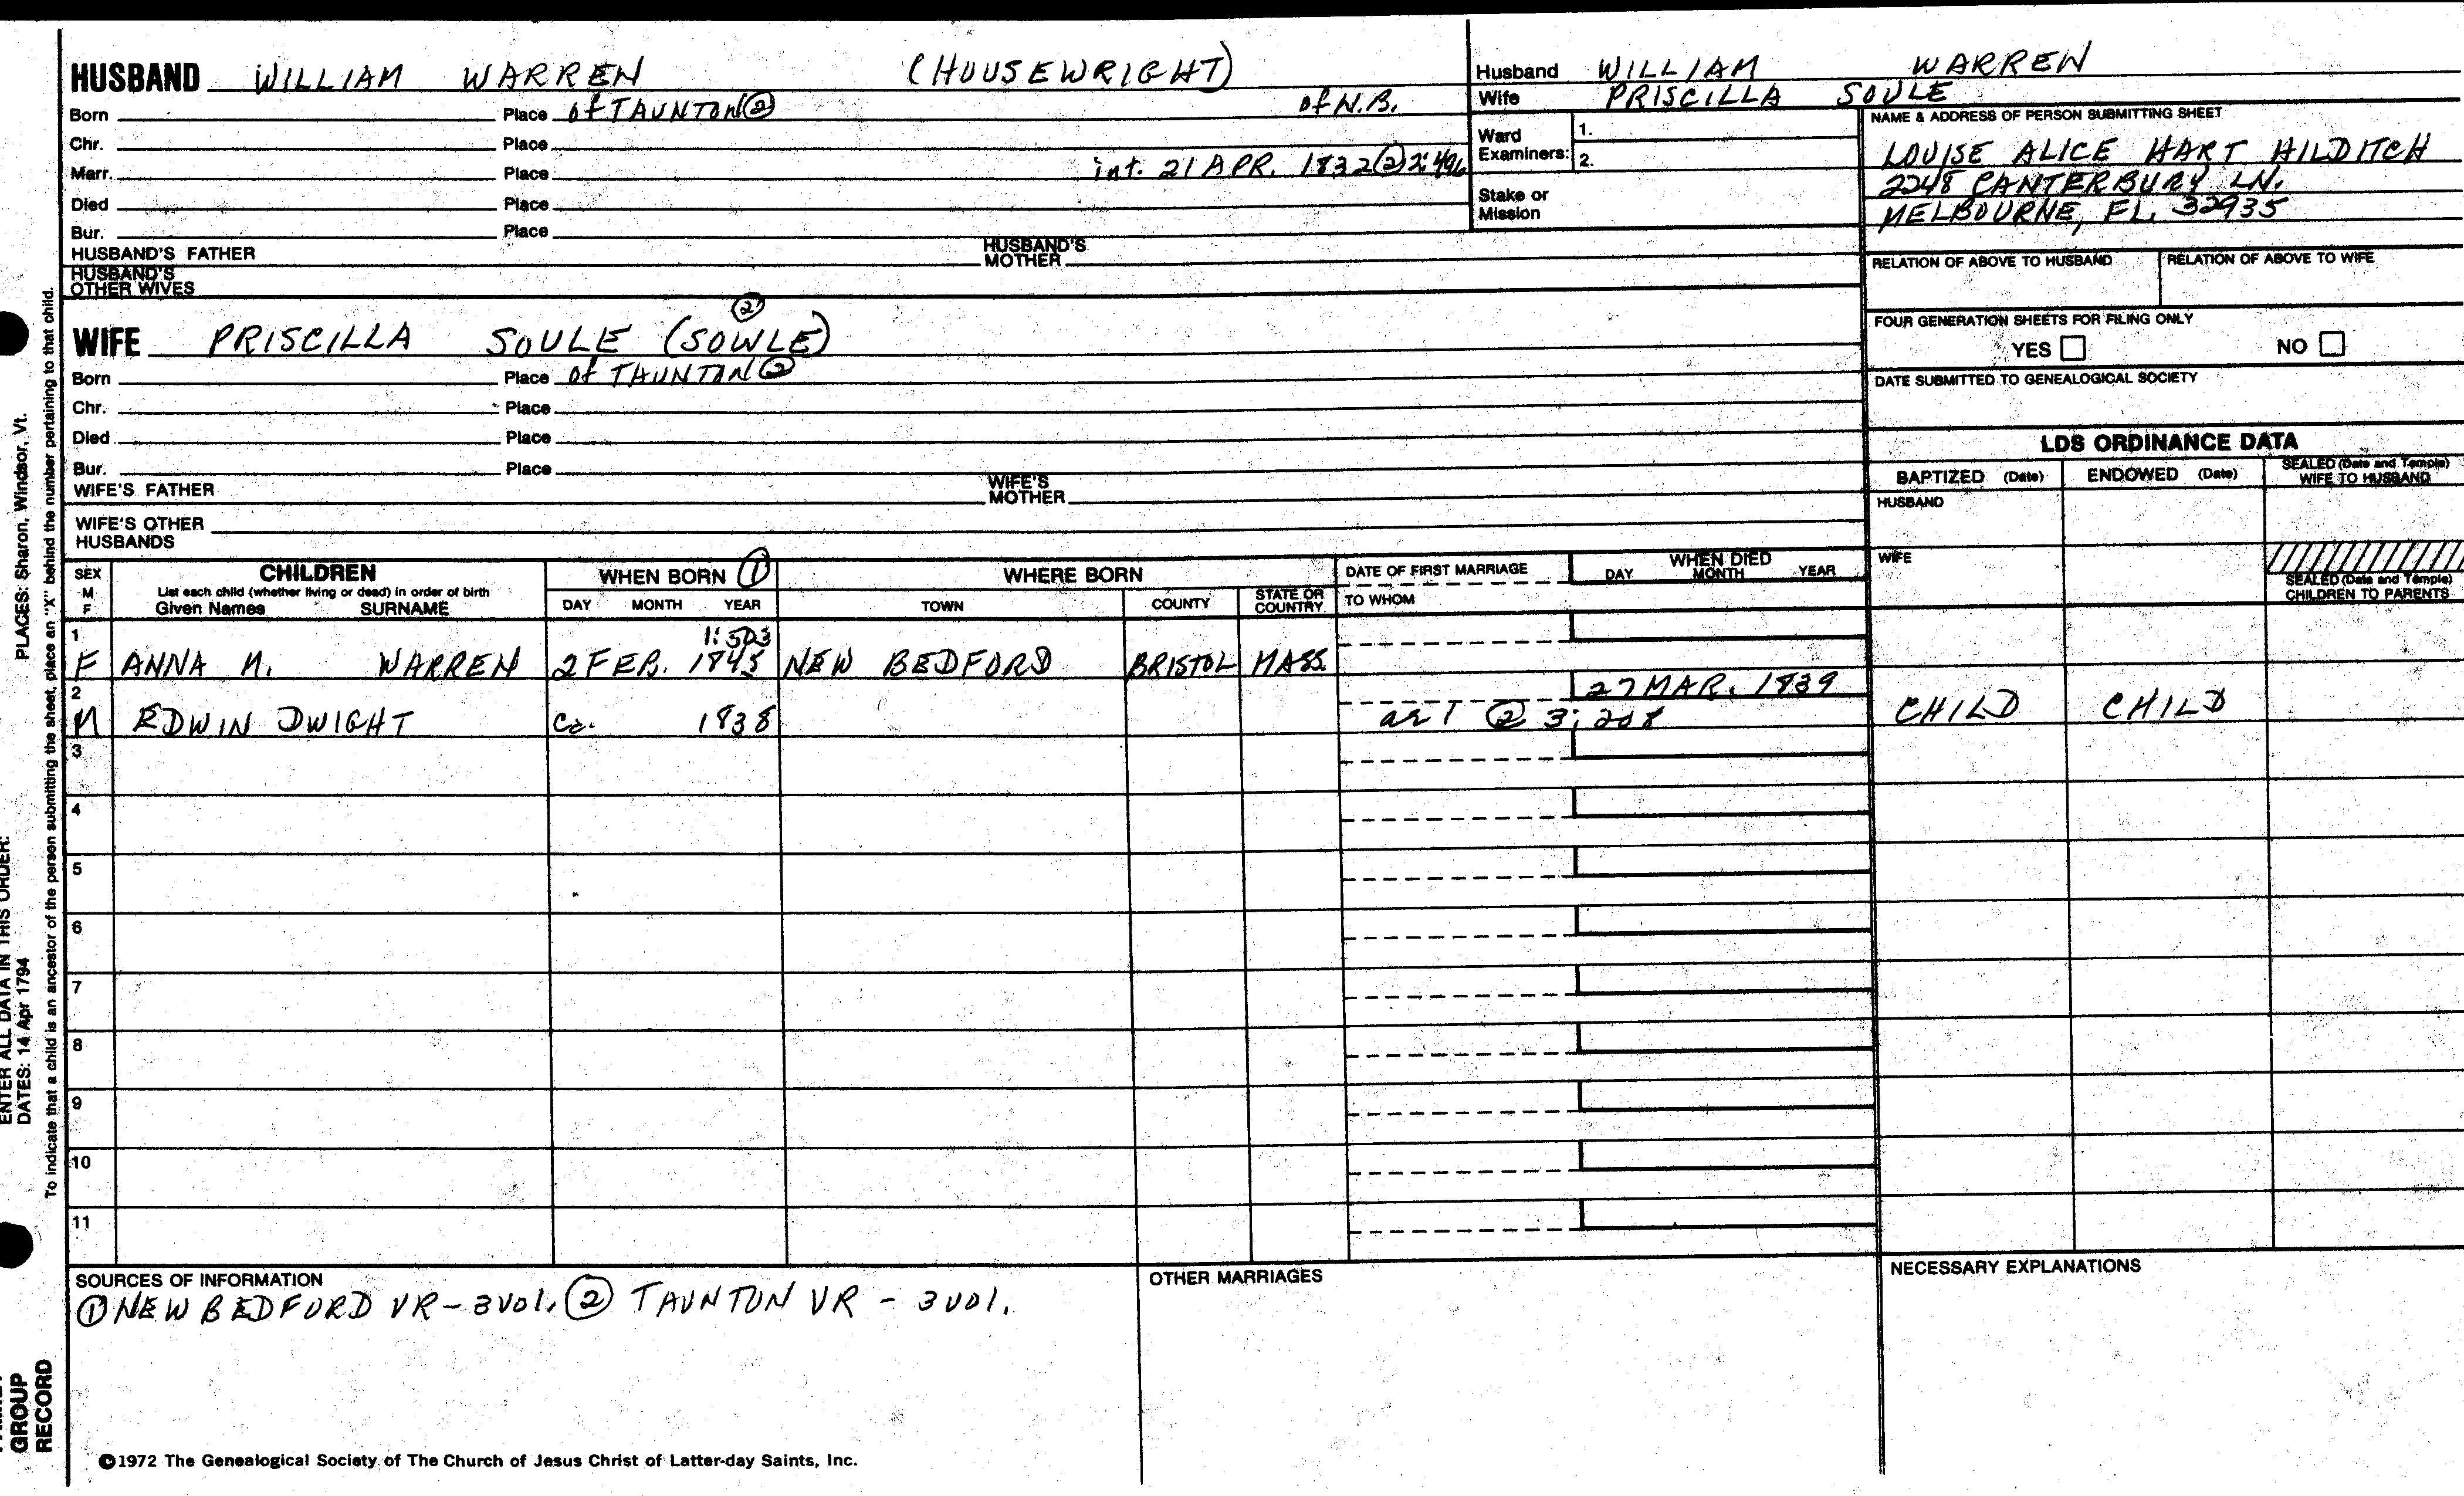 HUSBAND WILLIAM WARREN (HOUSEWRIGHT)
Born Place of TAUNTON ② of N.B.
Chr. Place
Marr. Place int. 21 APR. 1832 ② 2:496
Died Place
Bur. Place
HUSBAND'S FATHER HUSBAND'S MOTHER
HUSBAND'S OTHER WIVES
②
WIFE PRISCILLA SOULE (SOWLE)
Born Place of TAUNTON ②
Chr. Place
Died Place
Bur. Place
WIFE'S FATHER WIFE'S MOTHER
WIFE'S OTHER HUSBANDS
Husband WILLIAM WARREN
Wife PRISCILLA SOULE
Ward Examiners: 1.
2.
Stake or Mission
NAME & ADDRESS OF PERSON SUBMITTING SHEET
LOUISE ALICE HART HILDITCH
2248 CANTERBURY LN.
MELBOURNE, FL. 32935
RELATION OF ABOVE TO HUSBAND RELATION OF ABOVE TO WIFE
FOUR GENERATION SHEETS FOR FILING ONLY
YES NO
DATE SUBMITTED TO GENEALOGICAL SOCIETY
LDS ORDINANCE DATA
BAPTIZED (Date) ENDOWED (Date) SEALED (Date and Temple) WIFE TO HUSBAND
HUSBAND
WIFE
SEALED (Date and Temple) CHILDREN TO PARENTS
SEX M F
CHILDREN
List each child (whether living or dead) in order of birth
Given Names SURNAME
WHEN BORN ①
DAY MONTH YEAR
WHERE BORN
TOWN COUNTY STATE OR COUNTRY
DATE OF FIRST MARRIAGE
TO WHOM
WHEN DIED
DAY MONTH YEAR
1 1:503
F ANNA M. WARREN 2 FEB. 1845 NEW BEDFORD BRISTOL MASS.
2 27 MAR. 1839
M EDWIN DWIGHT ca. 1838 ae 1 ② 3:208 CHILD CHILD
3
4
5
6
7
8
9
10
11
SOURCES OF INFORMATION
① NEW BEDFORD VR - 3 vol. ② TAUNTON VR - 3 vol.
OTHER MARRIAGES
NECESSARY EXPLANATIONS
©1972 The Genealogical Society of The Church of Jesus Christ of Latter-day Saints, Inc.
PLACES: Sharon, Windsor, Vt.
ENTER ALL DATA IN THIS ORDER:
DATES: 14 Apr 1794
To indicate that a child is an ancestor of the person submitting the sheet, place an "X" behind the number pertaining to that child.
GROUP
RECORD